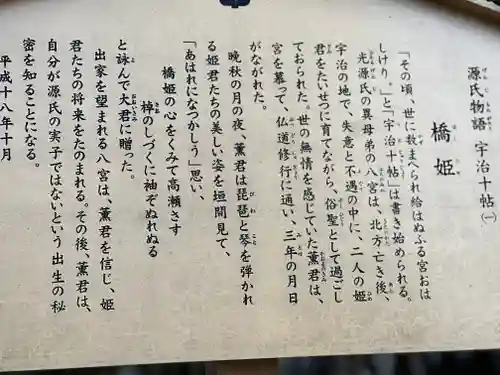 源氏物語 宇治十帖㈠
橋姫
「その頃、世に数まへられ給はぬふる宮おは
しけり。」と「宇治十帖」は書き始められる。
光源氏の異母弟の八宮は、北方亡き後、
宇治の地で、失意と不遇の中に、二人の姫
君をたいせつに育てながら、俗聖として過ごし
ておられた。世の無情を感じていた薫君は、
宮を慕って、仏道修行に通い、三年の月日
がながれた。
晩秋の月の夜、薫君は琵琶と琴を弾かれ
る姫君たちの美しい姿を垣間見て、
「あはれになつかしう」思い、
橋姫の心をくみて高瀬さす
棹のしづくに袖ぞぬれぬる
と詠んで大君に贈った。
出家を望まれる八宮は、薫君を信じ、姫
君たちの将来をたのまれる。その後、薫君は、
自分が源氏の実子ではないという出生の秘
密を知ることになる。
平成十八年十月